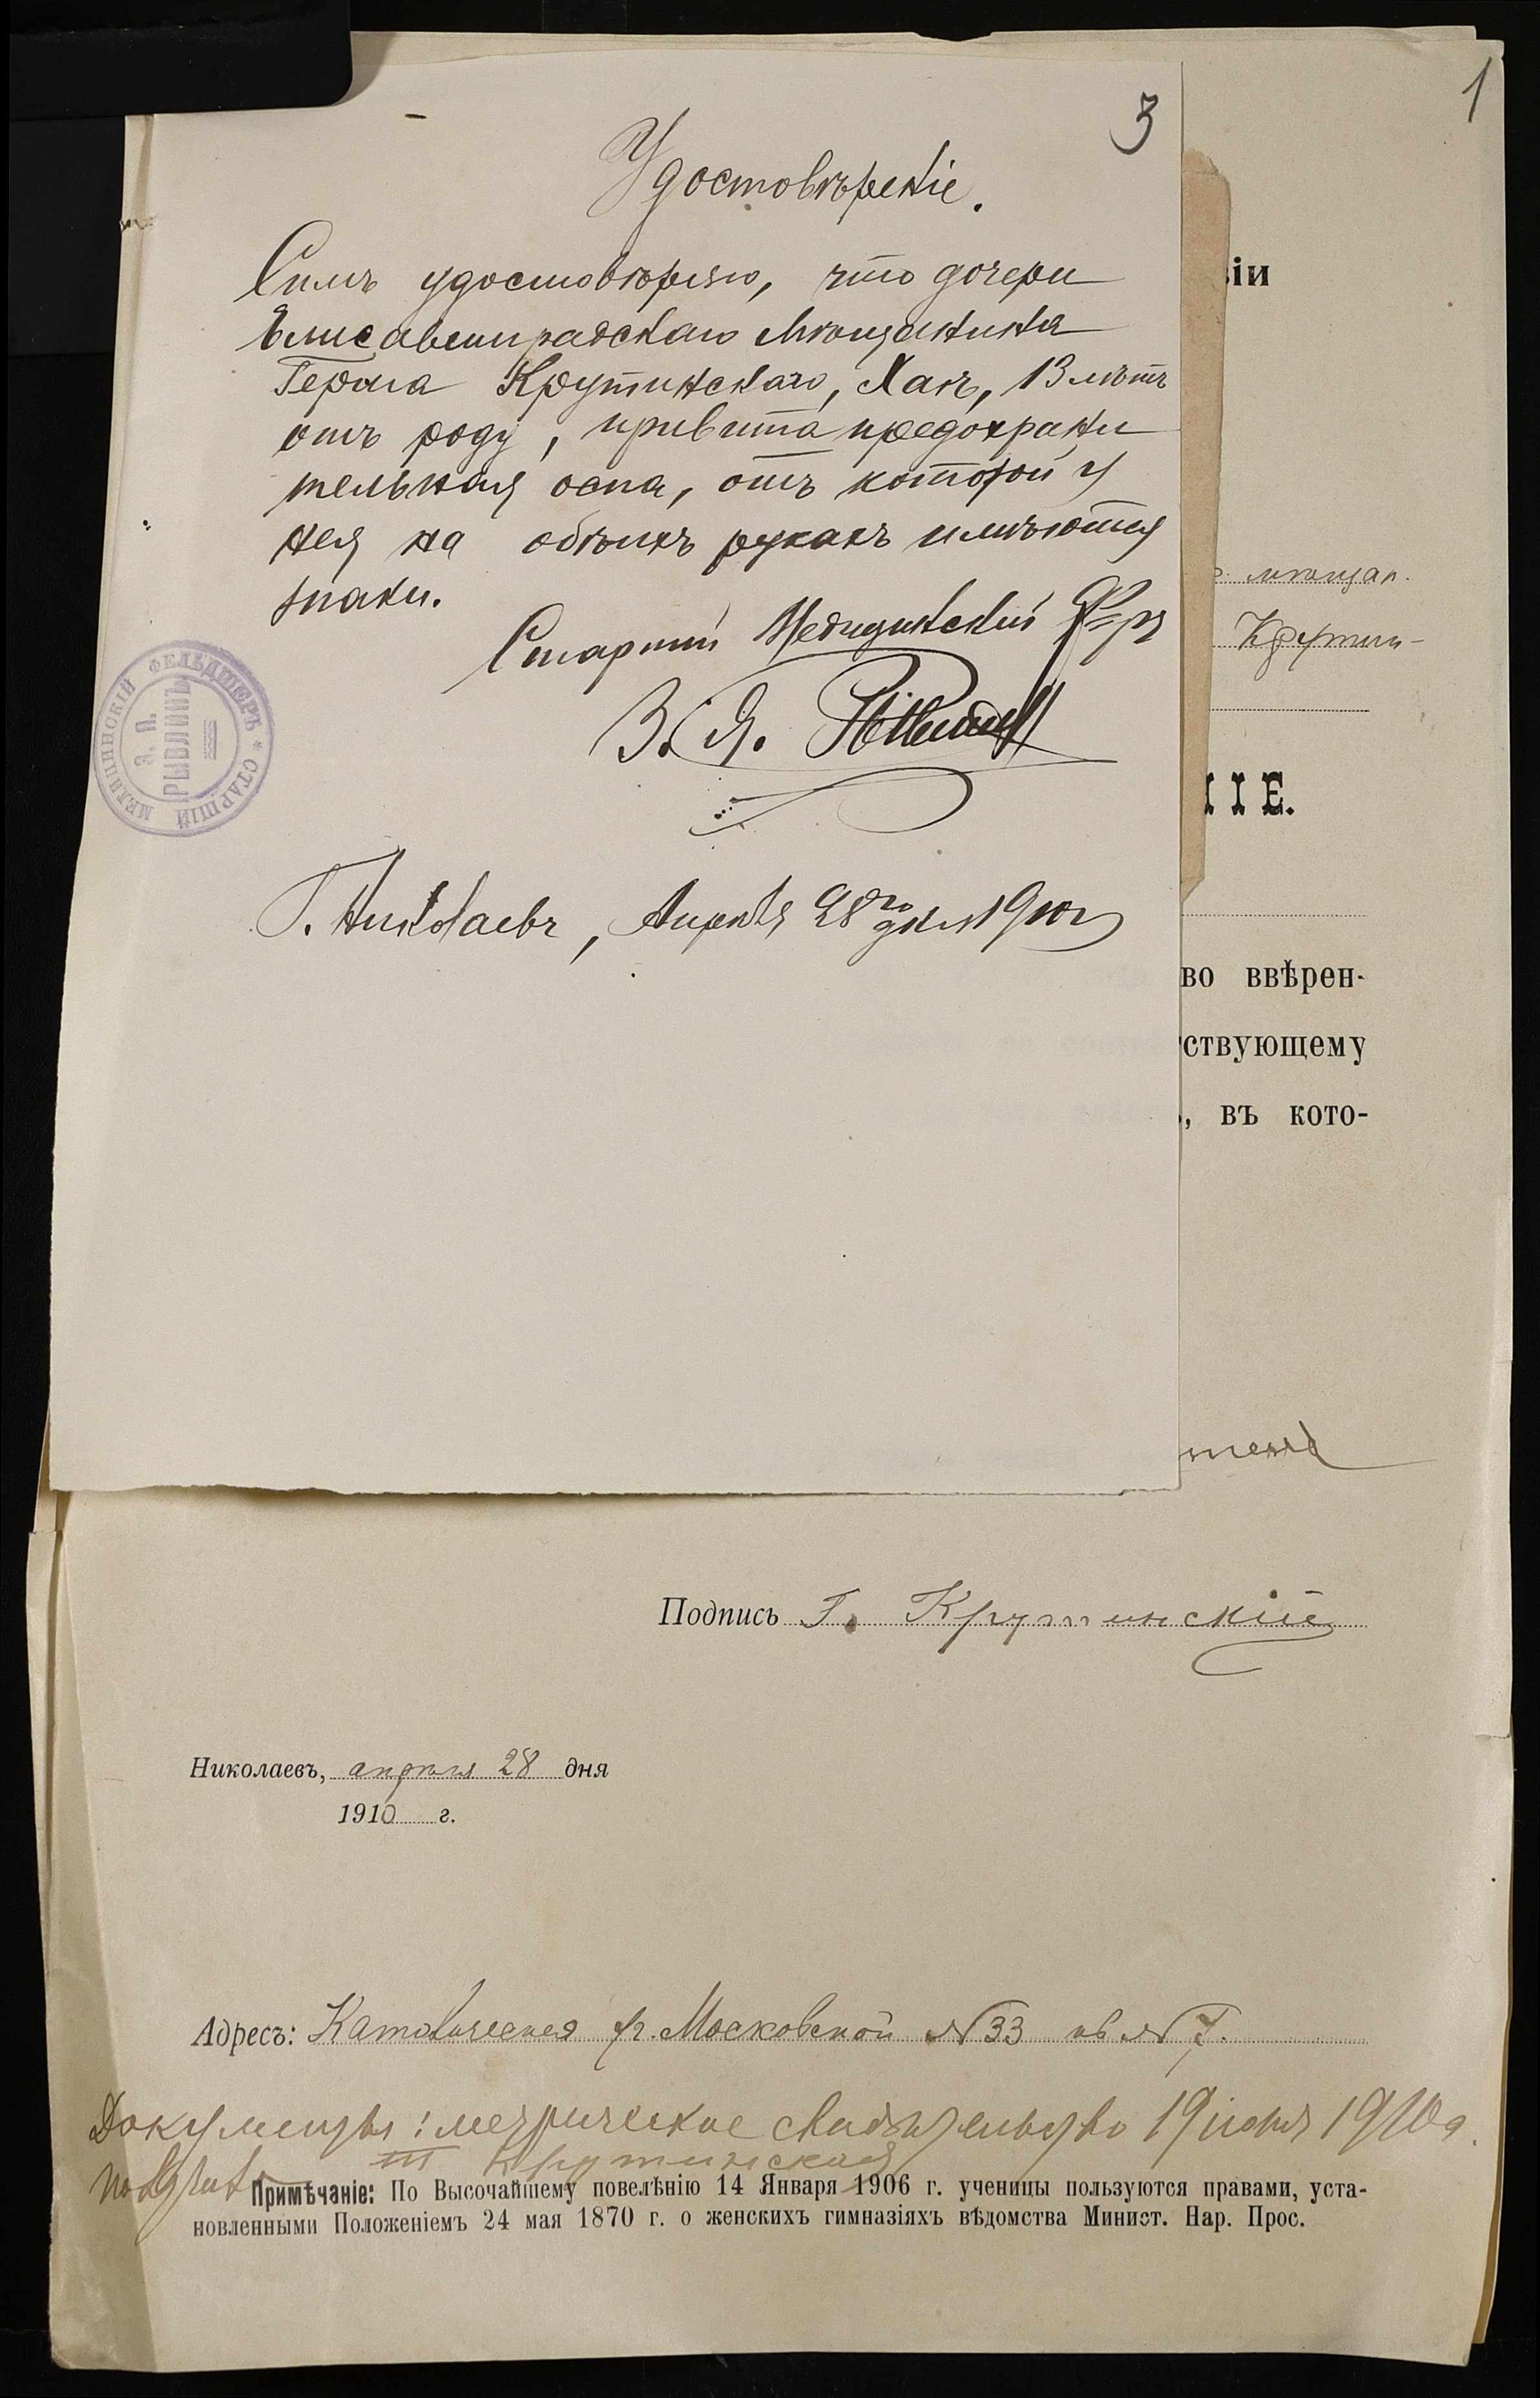 3
Удостовѣреніе.
Симъ удостовѣряю, что дочери
Елисаветградскаго Мѣщанина
Герша Крутинскаго, Хаѣ, 13 лѣтъ
отъ роду, привита предохрани
тельная оспа, отъ которой у
нея на обѣихъ рукахъ имѣются
знаки.
Старшій Медицинскій Ф-ръ
З. Я.
МЕДИЦИНСКІЙ ФЕЛЬДШЕРЪ * СТАРШІЙ
РЫВЛИНЪ
Г. Николаевъ, Апрѣля 28го дня 1910 г
1
ІИ
мѣщан.
Крутин-
ІЕ.
во ввѣрен-
ствующему
, въ кото-
Подпись Г. Крутинскій
Николаевъ, апрѣля 28 дня
1910 г.
Адресъ: Католическая уг. Московской № 33 кв № 7.
Документы: метрическое свидѣтельство 19 1910 г.
Крутинская
Примѣчаніе: По Высочайшему повелѣнію 14 Января 1906 г. ученицы пользуются правами, уста-
новленными Положеніемъ 24 мая 1870 г. о женскихъ гимназіяхъ вѣдомства Минист. Нар. Прос.